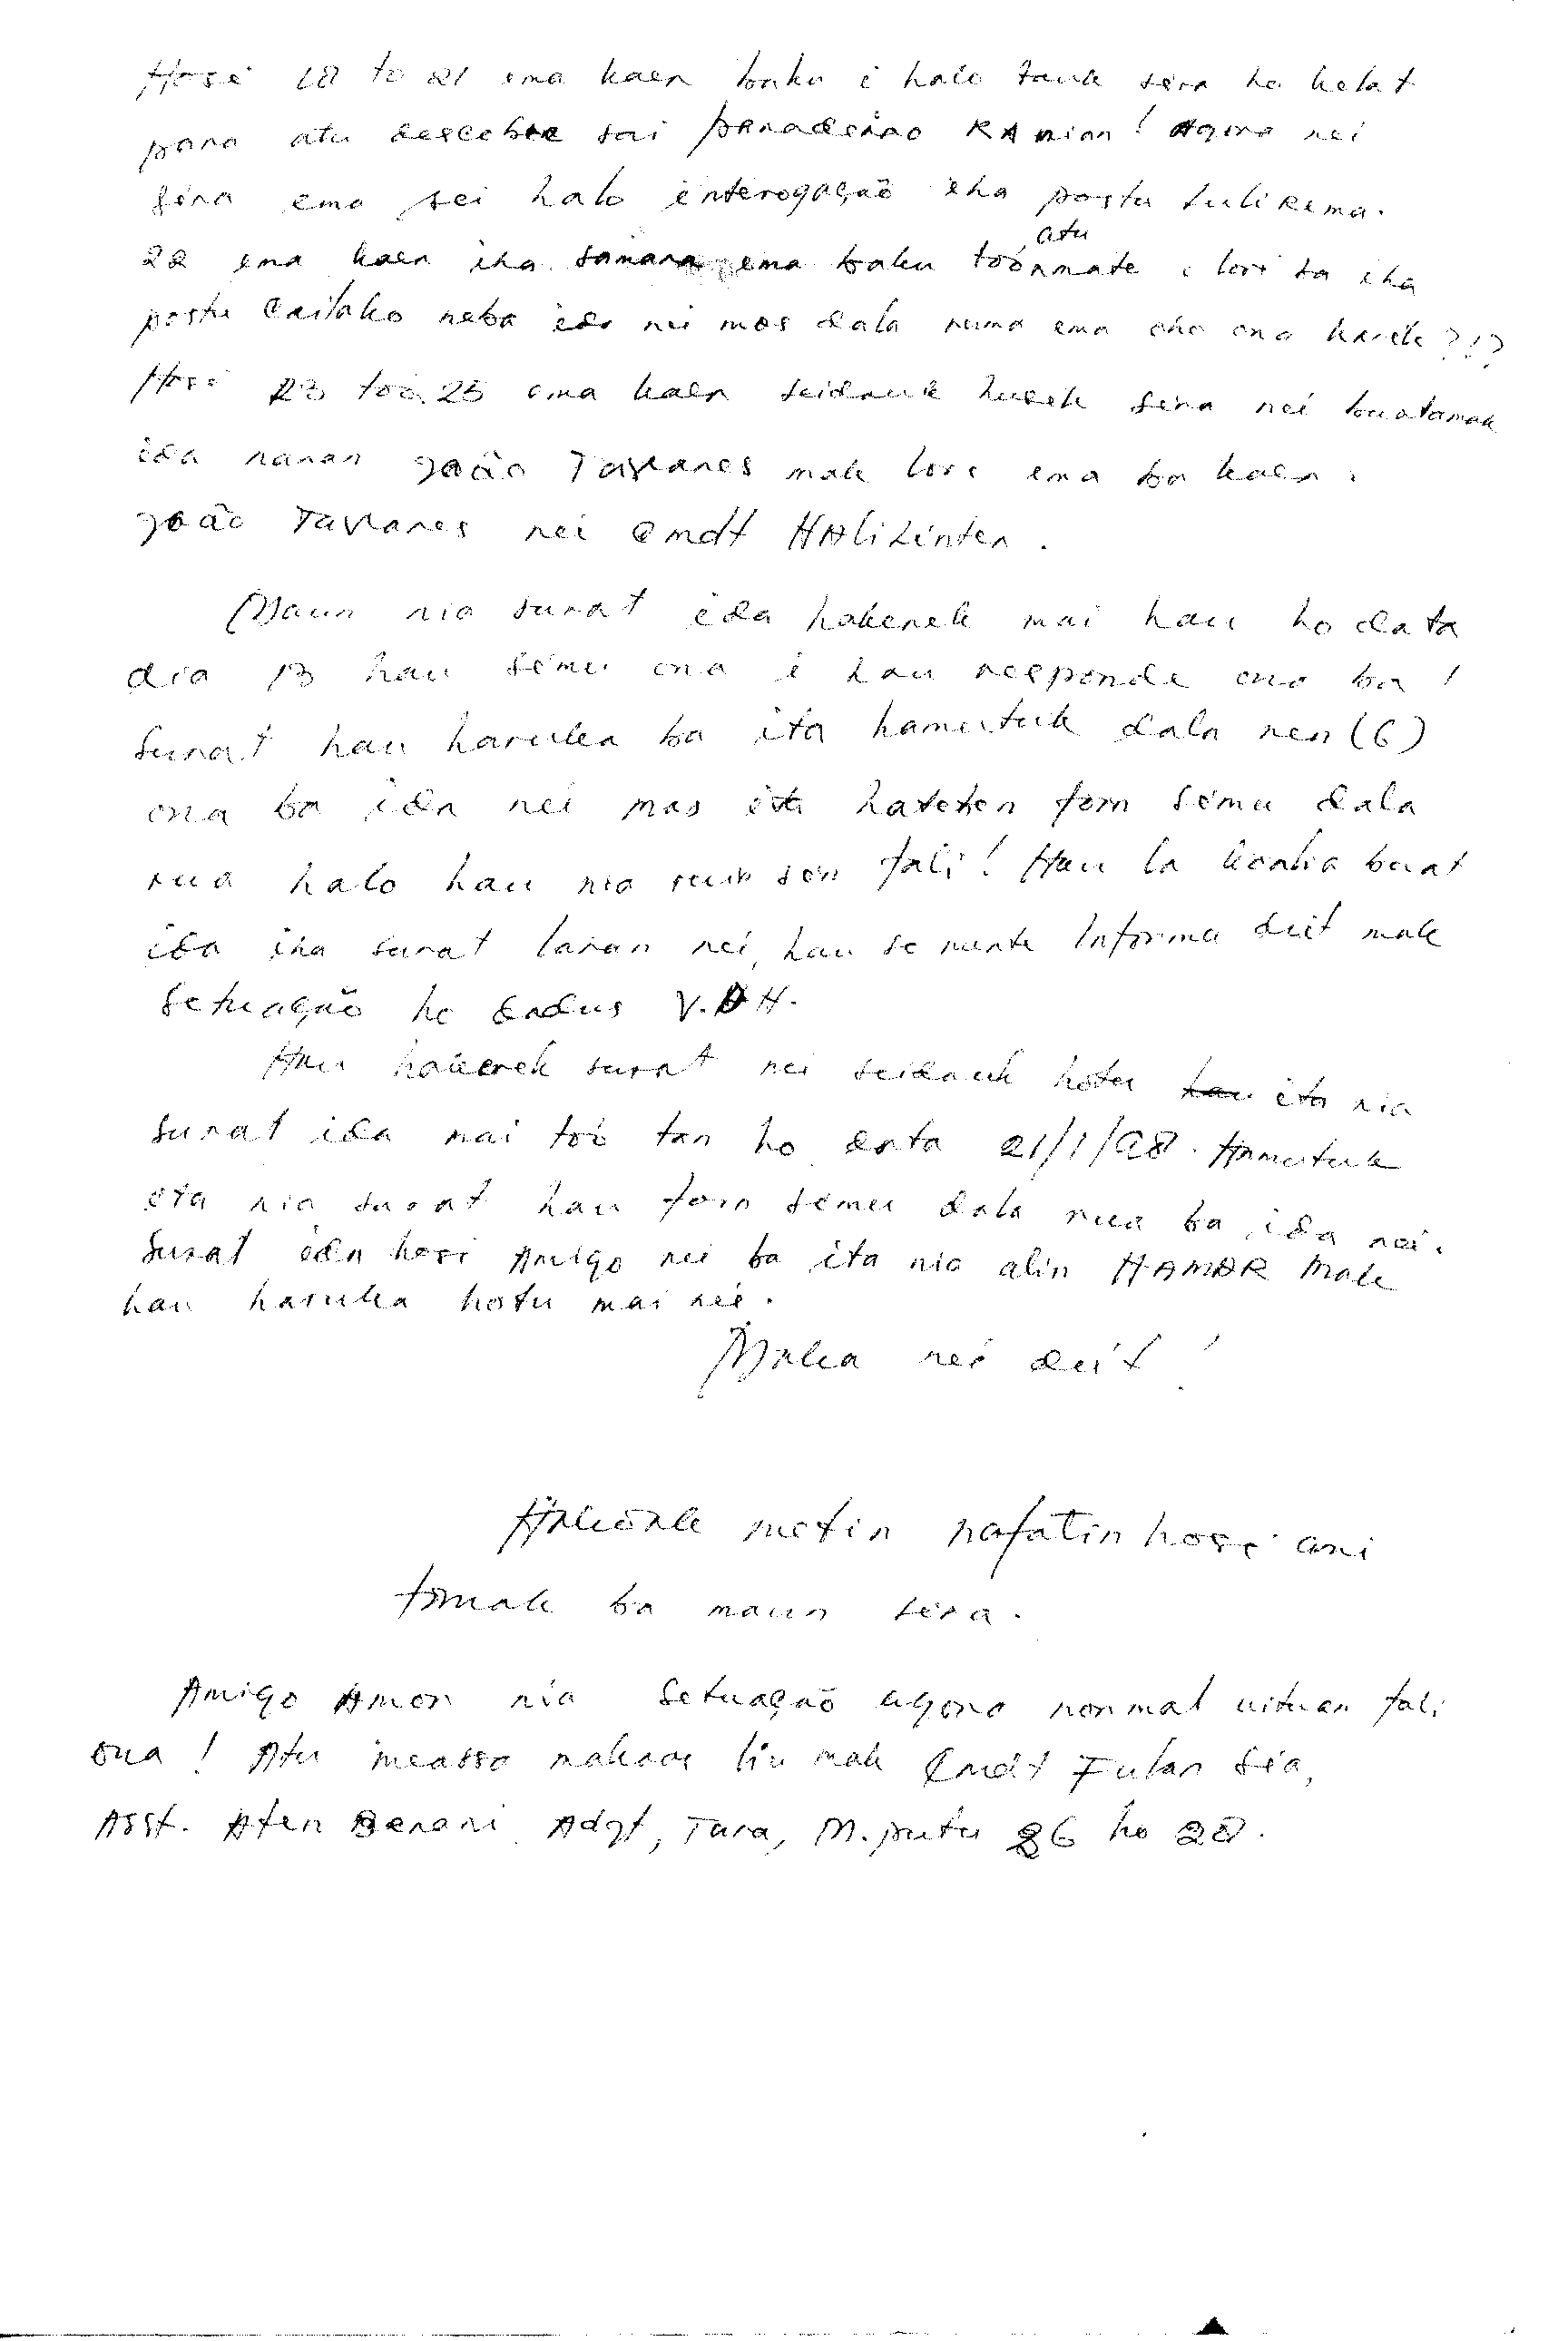 Hosi 18 to 21 ema kaer baku i halo tauk sira ho kelat
para atu descobre sai paradeiro RAmian! Agora nei
sira ema sei halo interogação iha postu tulikema.
22 ema kaer iha samara ema baku toó atu mate i lori ba iha
postu Cailako neba ida nei mos dala ruma ema oho ona karik?!?
Hosi 23 toó 25 ema kaer seidauk husik sira nei buatamak
ida naran João Tavares mak lori ema ba kaer.
João Tavares nei Cmdt HAliLinter.
Maun nia surat ida hakerek mai hau ho data
dia 13 hau simu ona i hau responde ona ba!
Surat hau haruka ba ita hamutuk dala nen (6)
ona ba ida nei mas ita hateten foin simu dala
rua halo hau nia ruin són fali! Hau la koalia buat
ida iha surat laran nei, hau so mente Informa deit mak
setuação ho dadus V.DH.
Hau hakerek surat nei seidauk hotu hau ita nia
surat ida mai toó tan ho data 21/1/98. Hamutuk
ita nia surat hau foin simu dala rua ba ida nei.
Surat ida hosi Amigo nei ba ita nia alin HAMAR mak
hau haruka hotu mai nei.
Maka nei deit!
Hakoak metin nafatin hosi ami
tomak ba maun sira.
Amigo Amon nia setuação agora normal uituan fali
ona! Atu meassa maknar liu mak Cmdt Fulan Sia,
Asst. Aten Berani Adgt, Tara, M.putu 26 ho 28.